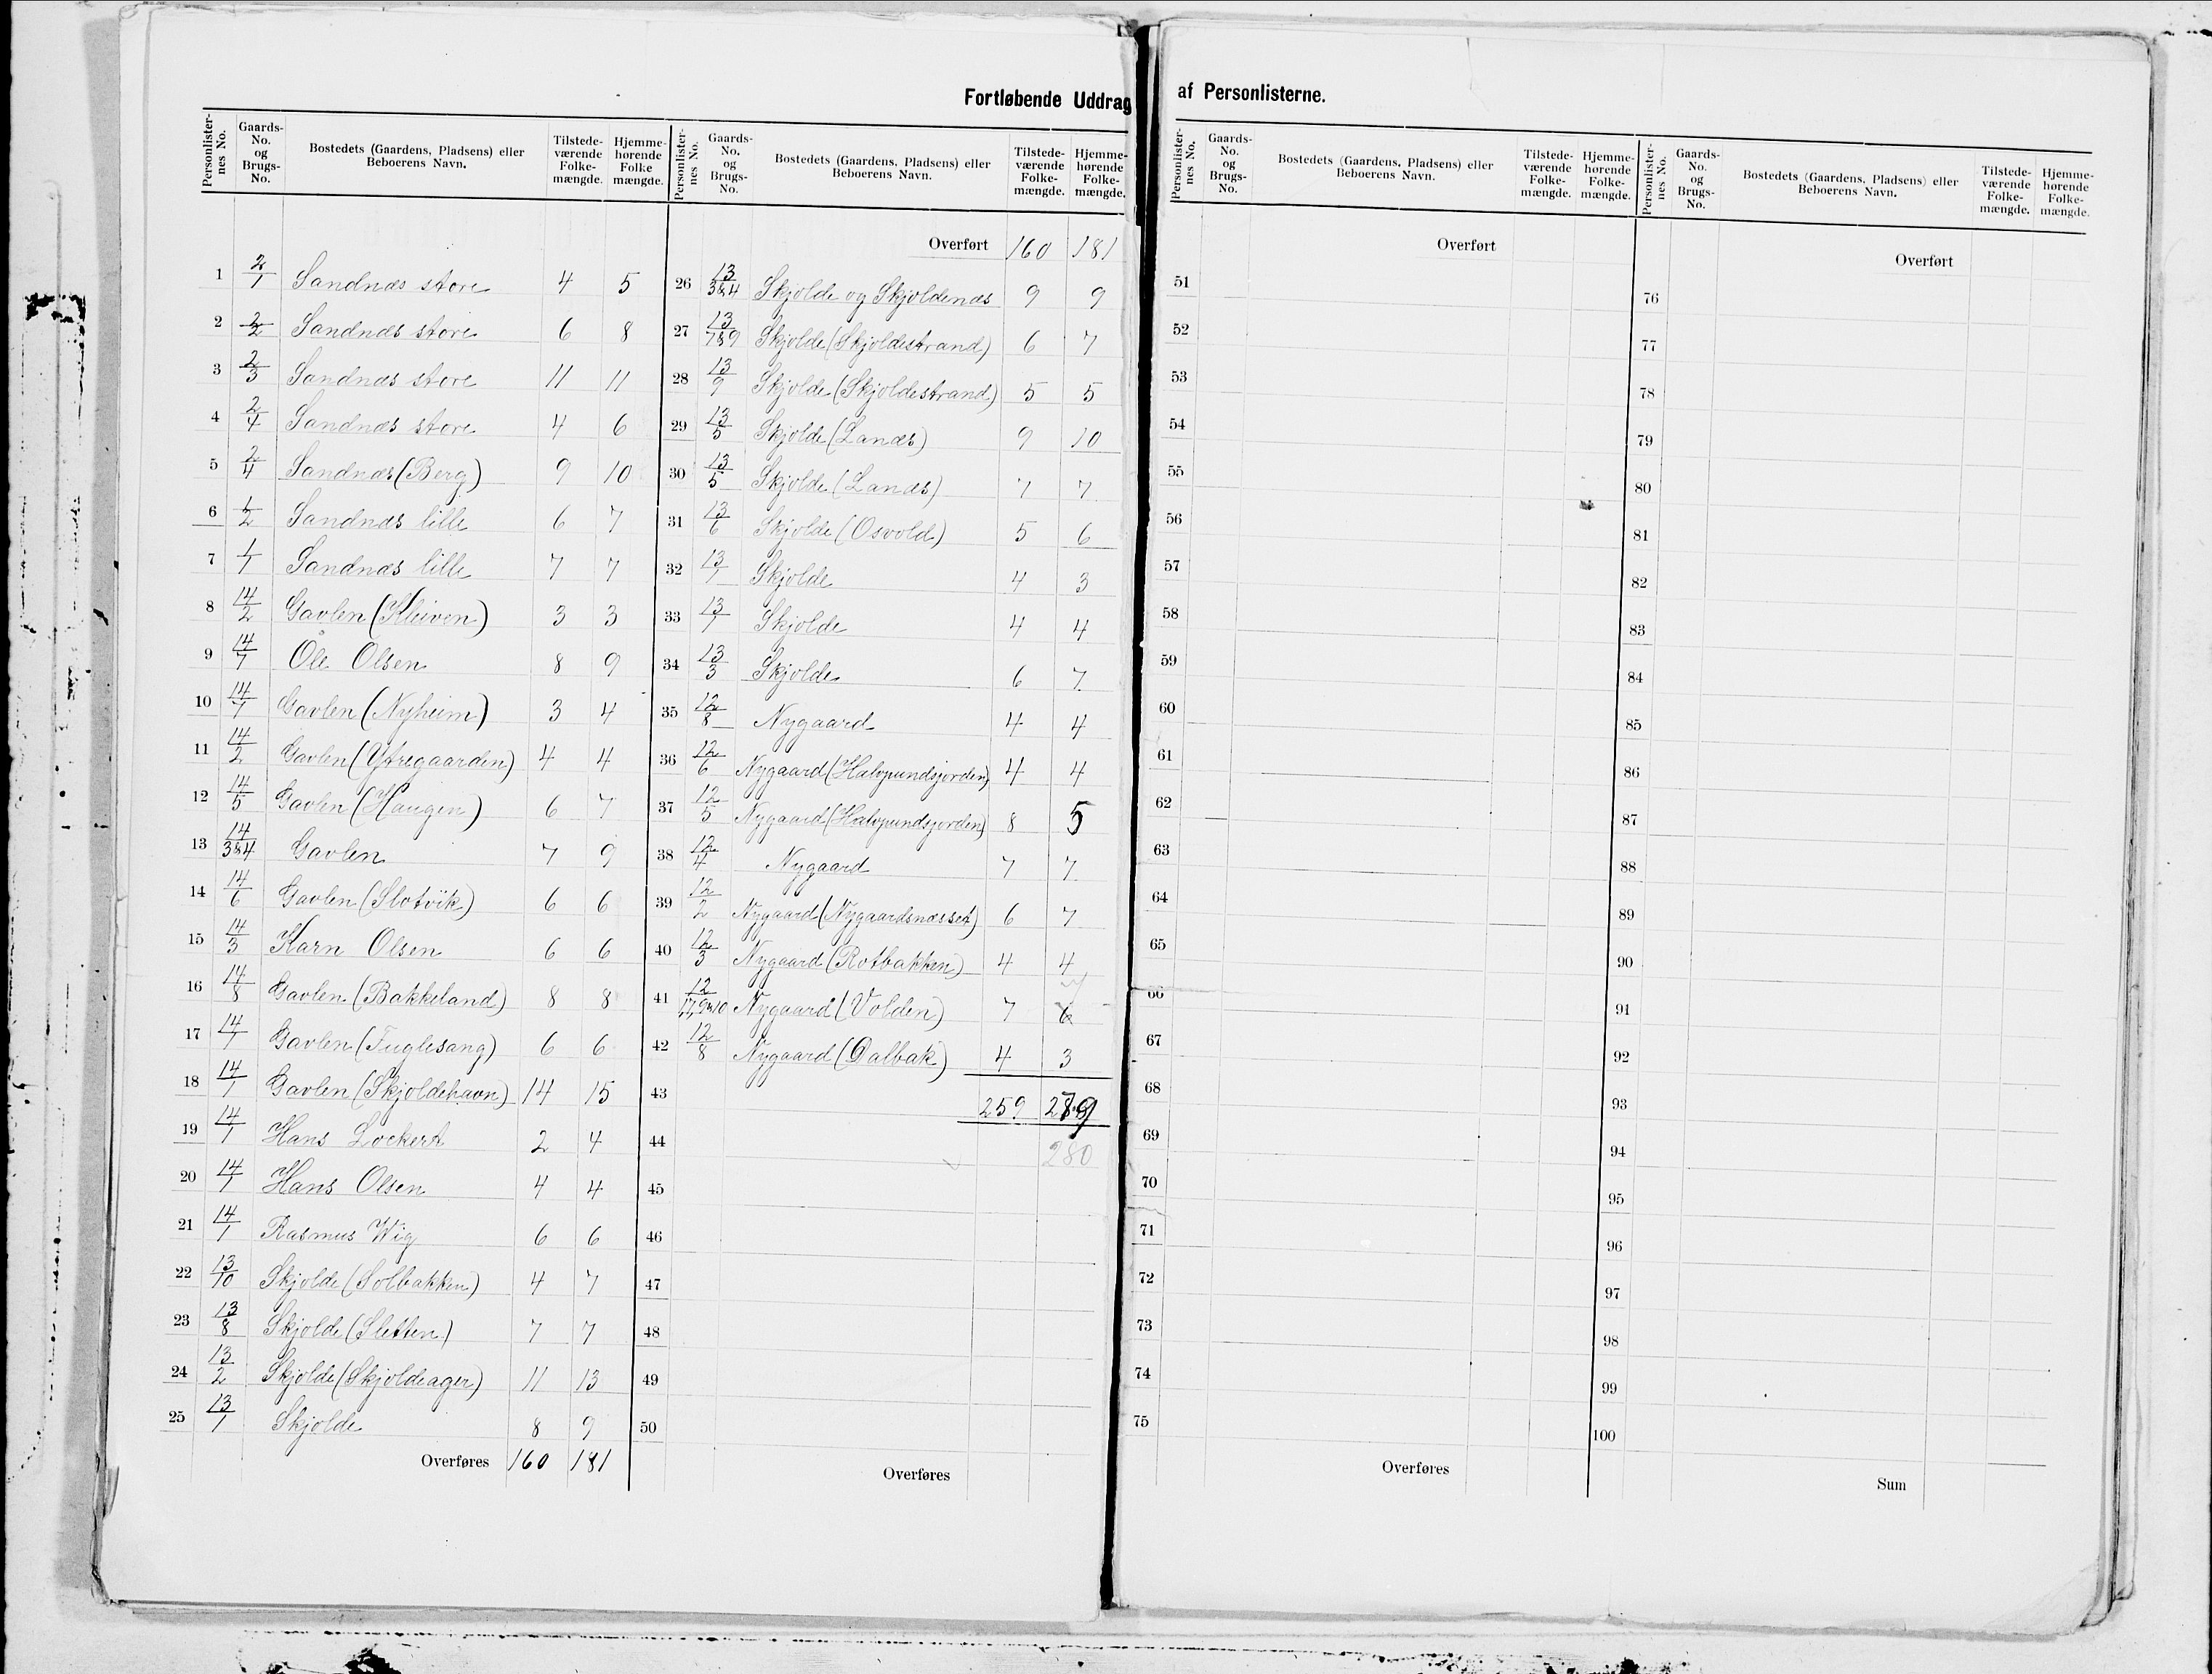 Fortløbende Uddrag af Personlisterne.
Personlister-nes No. | Gaards-No. og Brugs-No. | Bostedets (Gaardens, Pladsens) eller Beboerens Navn. | Tilstede-værende Folke-mængde. | Hjemme-hørende Folke mængde.
1 2/1 Sandnæs store 4 5
2 2/2 Sandnæs store 6 8
3 2/3 Sandnæs store 11 11
4 2/4 Sandnæs store 4 6
5 2/4 Sandnæs (Berg) 9 10
6 1/2 Sandnæs lille 6 7
7 1/1 Sandnæs lille 7 7
8 14/2 Gavlen (Kleiven) 3 3
9 14/7 Ole Olsen 8 9
10 14/1 Gavlen (Nyheim) 3 4
11 14/2 Gavlen (Ytregaarden) 4 4
12 14/5 Gavlen (Haugen) 6 7
13 14/3&4 Gavlen 7 9
14 14/6 Gavlen (Slotvik) 6 6
15 14/3 Karn Olsen 6 6
16 14/8 Gavlen (Bakkeland) 8 8
17 14/1 Gavlen (Fuglesang) 6 6
18 14/1 Gavlen (Skjoldehavn) 14 15
19 14/1 Hans Lockert 2 4
20 14/1 Hans Olsen 4 4
21 14/1 Rasmus Wig 6 6
22 13/10 Skjolde (Solbakken) 4 7
23 13/8 Skjolde (Sletten) 7 7
24 13/2 Skjolde (Skjoldeager) 11 13
25 13/1 Skjolde 8 9
Overføres 160 181
Personlister-nes No. | Gaards-No. og Brugs-No. | Bostedets (Gaardens, Pladsens) eller Beboerens Navn. | Tilstede-værende Folke-mængde. | Hjemme-hørende Folke-mængde.
Overført 160 181
26 13/3&4 Skjolde og Skjoldenæs 9 9
27 13/7&9 Skjolde (Skjoldestrand) 6 7
28 13/9 Skjolde (Skjoldestrand) 5 5
29 13/5 Skjolde (Lanæs) 9 10
30 13/5 Skjolde (Lanæs) 7 7
31 13/6 Skjolde (Osvold) 5 6
32 13/1 Skjolde 4 3
33 13/1 Skjolde 4 4
34 13/3 Skjolde 6 7
35 12/8 Nygaard 4 4
36 12/6 Nygaard (Halvpundsjorden) 4 4
37 12/5 Nygaard (Halvpundsjorden) 8 5
38 12/4 Nygaard 7 7
39 12/2 Nygaard (Nygaardsnæsset) 6 7
40 12/3 Nygaard (Rotbakken) 4 4
41 Nygaard (Volden) 7 6
42 12/8 Nygaard (Dalbak) 4 3
43 259 279
44 280
45
46
47
48
49
50
Overføres
Personlister-nes No. | Gaards-No. og Brugs-No. | Bostedets (Gaardens, Pladsens) eller Beboerens Navn. | Tilstede-værende Folke-mængde. | Hjemme-hørende Folke-mængde.
Overført
51
52
53
54
55
56
57
58
59
60
61
62
63
64
65
66
67
68
69
70
71
72
73
74
75
Overføres
Personlister-nes No. | Gaards-No. og Brugs-No. | Bostedets (Gaardens, Pladsens) eller Beboerens Navn. | Tilstede-værende Folke-mængde. | Hjemme-hørende Folke-mængde.
Overført
76
77
78
79
80
81
82
83
84
85
86
87
88
89
90
91
92
93
94
95
96
97
98
99
100
Sum